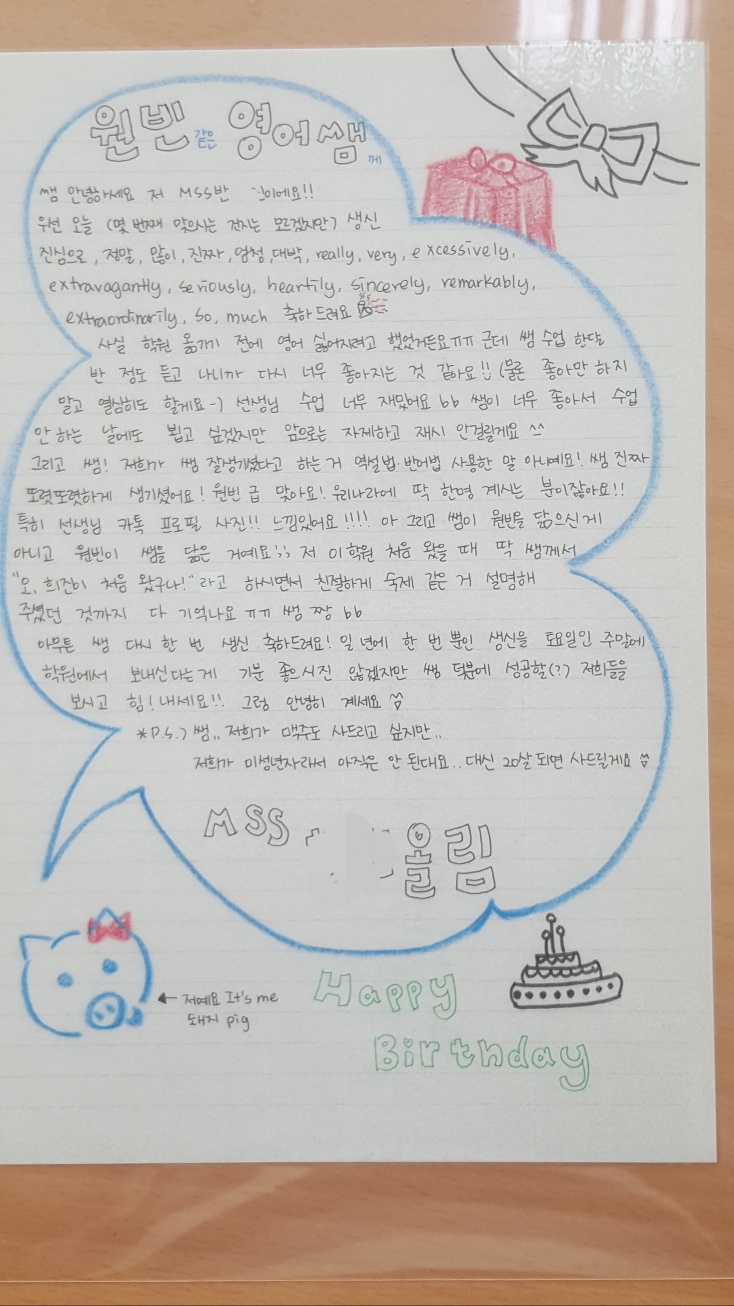 원빈 같은 영어쌤 께
쌤 안녕하세요 저 MSS반 이에요!!
우선 오늘 (몇 번째 맞으시는 건지는 모르겠지만) 생신
진심으로, 정말, 많이, 진짜, 엄청, 대박, really, very, excessively,
extravagantly, seriously, heartily, sincerely, remarkably,
extraordinarily, so, much 축하드려요
사실 학원 옮기기 전에 영어 싫어지려고 했었거든요ㅠㅠ 근데 쌤 수업 한달
반 정도 듣고 나니까 다시 너무 좋아지는 것 같아요!! (물론 좋아만 하지
말고 열심히도 할게요-) 선생님 수업 너무 재밌어요 bb 쌤이 너무 좋아서 수업
안 하는 날에도 뵙고 싶겠지만 앞으로는 자제하고 재시 안걸릴게요 ^^
그리고 쌤! 저희가 쌤 잘생기셨다고 하는 거 역설법·반어법 사용한 말 아니예요! 쌤 진짜
또렷또렷하게 생기셨어요! 원빈 급 맞아요! 우리나라에 딱 한명 계시는 분이잖아요!!
특히 선생님 카톡 프로필 사진!! 느낌있어요!!!! 아 그리고 쌤이 원빈을 닮으신게
아니고 원빈이 쌤을 닮은 거예요;; 저 이학원 처음 왔을 때 딱 쌤께서
"오, 희진이 처음 왔구나!" 라고 하시면서 친절하게 숙제 같은 거 설명해
주셨던 것까지 다 기억나요 ㅠㅠ 쌤 짱 bb
아무튼 쌤 다시 한 번 생신 축하드려요! 일 년에 한 번 뿐인 생신을 토요일인 주말에
학원에서 보내신다는게 기분 좋으시진 않겠지만 쌤 덕분에 성공할(??) 저희들을
보시고 힘!내세요!! 그럼 안녕히 계세요
*P.S.) 쌤.. 저희가 맥주도 사드리고 싶지만..
저희가 미성년자라서 아직은 안 된대요.. 대신 20살 되면 사드릴게요
MSS 올림
저예요 It's me
돼지 pig
Happy
Birthday